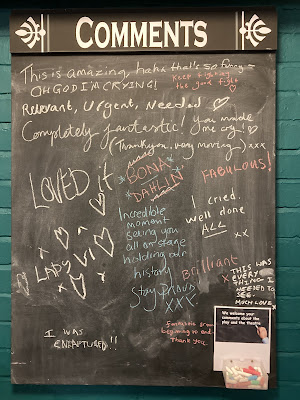 COMMENTS
This is amazing, haha that's so funny =
OH GOD I'M CRYING!
keep fighting
the good fight
Relevant, Urgent, Needed
Completely fantastic! You made
me cry!
(Thankyou, very moving-) xxx
LOVED it
BONA
DAHLIN'
FABULOUS!
Incredible
moment
seeing you
all on stage
holding our
history
Stay Proud
XXX
I cried.
Well done
ALL
xx
LADY
Brilliant
THIS WAS
EVERY
THING I
NEEDED TO
SEE
MUCH LOVE x
I WAS
ENRAPTURED!!
Fantastic from
beginning to end.
Thank you
We welcome your
comments about the
play and the theatre